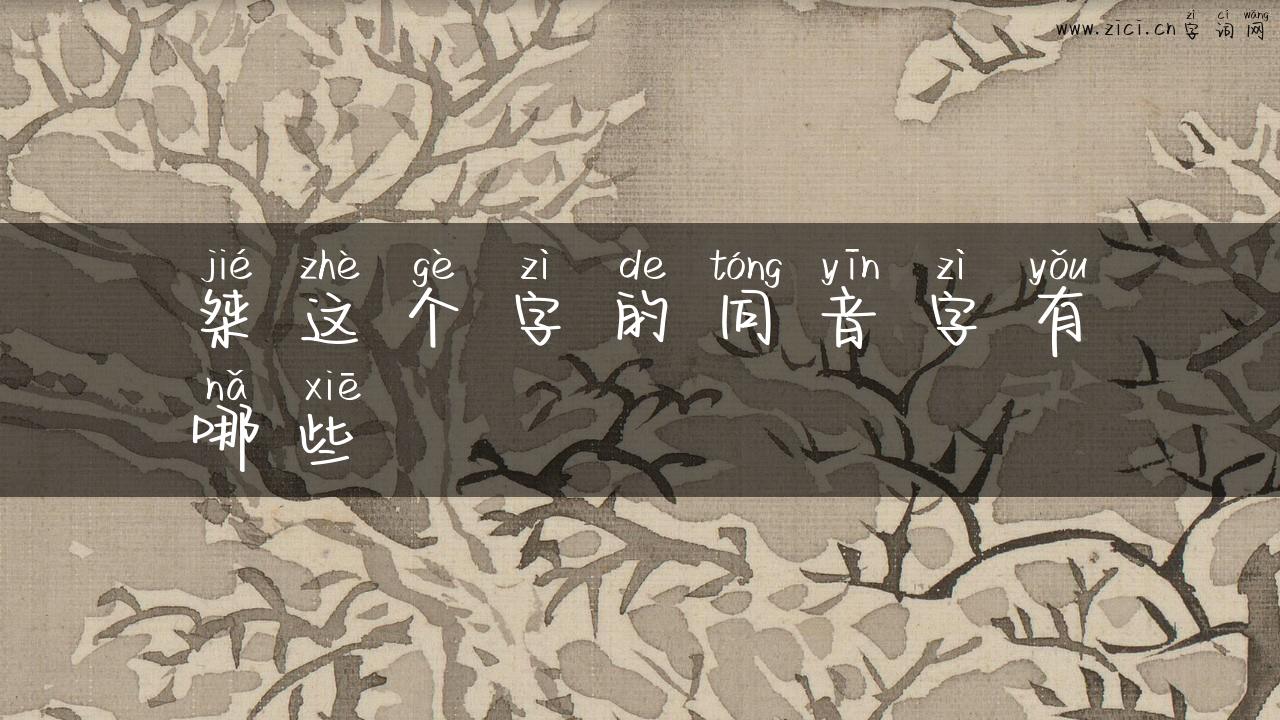 zì cí wǎng
www.zici.cn 字 词 网
jié zhè gè zì de tóng yīn zì yǒu
桀 这 个 字 的 同 音 字 有
nǎ xiē
哪 些